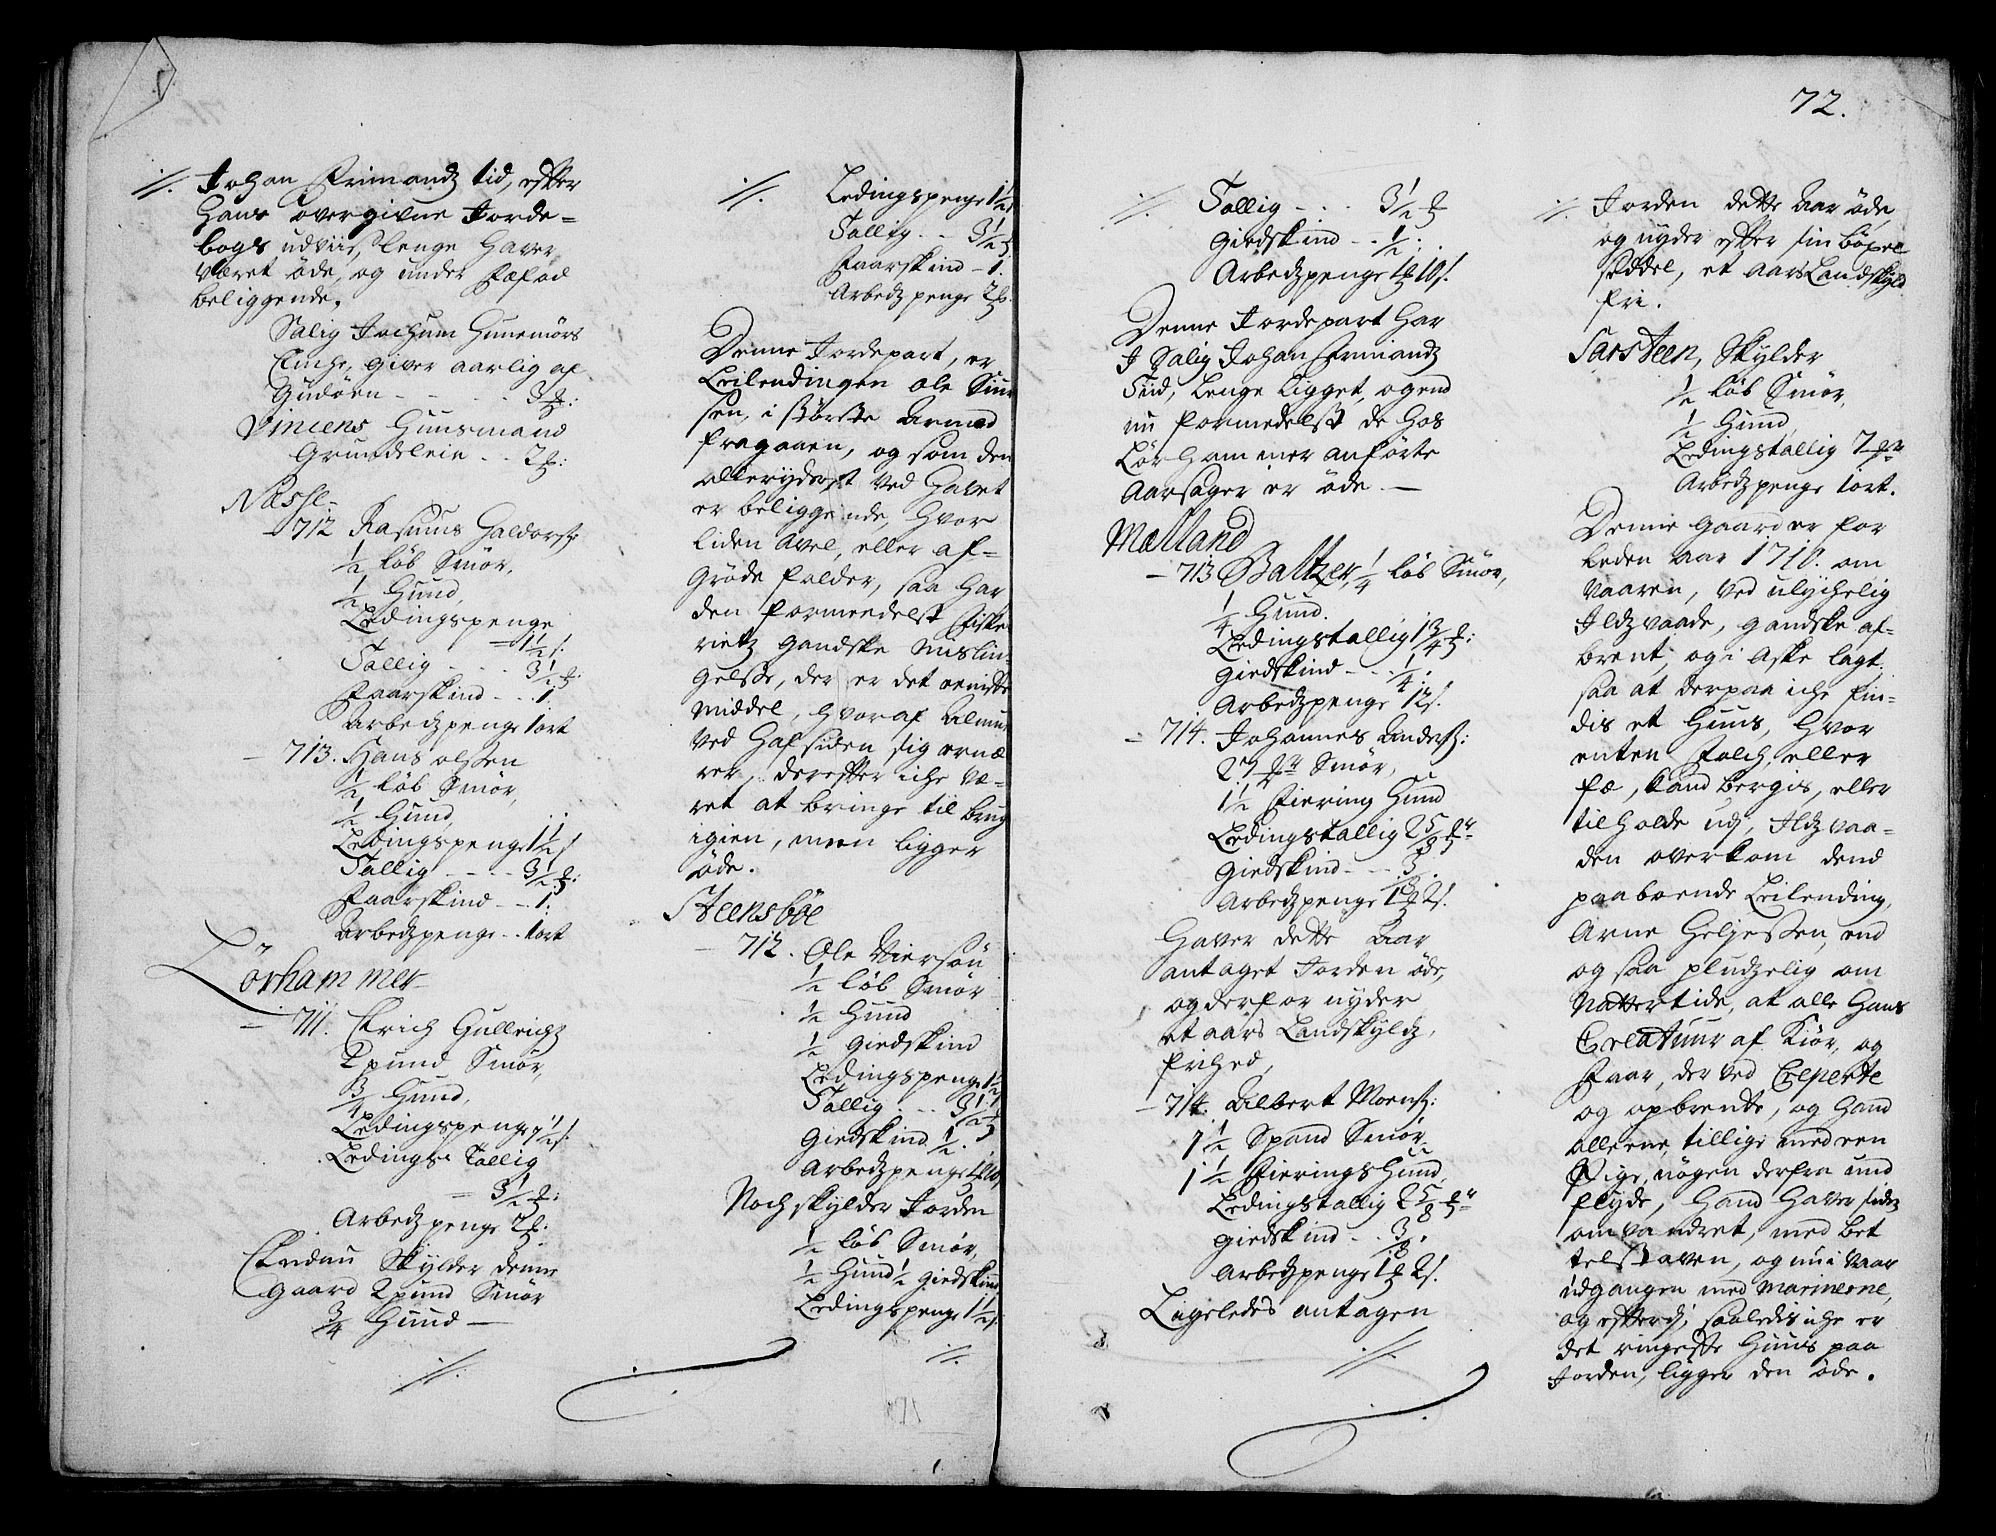 72.
./. Johan Frimandz tid, efter
Hans overgifne Jorde=
bogs udviis, lenge Haver
Været öde, og under Fæfod
beliggende.
Salig Jochum Hunemörs
Enche, giver aarlig af
Gudöen - - - - 3
Vincens Huusmand
Grundeleie - - 2
Næsse
- 712 Rasmus Haldors:
1/2 löb Smör,
1/2 Hund,
Ledingspenge
- 1 1/2 s.
Tallig - - - 3 1/2
Faarskind - - 1.
Arbedzpenge 1 ort
- 713. Hans olssen
1/2 löb Smör,
1/2 Hund,
Ledingspenge 1 1/2 s
Tallig - - - - 3 1/2
Faarskind - - 1.
Arbedzpenge - - 1 ort
Lörhammer
- 711. Erich Gullichz
2 pund Smör,
3/4 Hund,
Ledingspenge 1/2 s.
Ledings Tallig
- 3 1/2
Arbedzpenge 2
Endnu Skylder denne
gaard 2 pund Smör
3/4 Hund -
./.
./. Ledingspenge 1 1/2 s
Tallig - - 3 1/2
Faarskind - 1.
Arbedzpenge 2
Denne Jordepart, er
Leilendingen ole
sen, i störste Armod
fragaaen, og som den
alleryderst ved Havet
er beliggende, Hvor
liden Avel, eller af=
Gröde falder, saa Har
den formedelst Fiske
rietz Gandske Mislin=
gelse, der er det eeniste
Middel, Hvoraf Almue
Ved Hafsiden sig ernæ
rer, derefter iche Væ=
ret at bringe til brug
igien, men ligger
öde.
Steensböe
- 712. Ole Niersön
1/2 löb Smör
1/2 Hund
1/2 Giedskind
Ledingspenge 1 1/2
Tallig - - 3 1/2
Giedskind 1/2.
Arbedzpenge
Noch skylder Jorden
1/2 löb Smör,
1/2 Hund 1/2 Giedskind
Ledingspenge 1 1/2 s.
./.
./. Tallig - - - 3 1/2
Giedskind - - 1/2.
Arbedzpenge 1 10 s.
Denne Jordepart Har
I Salig Johan Frimandz
Tiid, Lenge ligget, og end
nu formedelst de Hos
Lörhammer anförte
Aarsager er öde. -
Mælland
- 713 Baltzer, 1/4 löb Smör,
1/4 Hund.
Ledingstallig 1 3/4
Giedskind - - 1/4.
Arbedzpenge 12 s.
- 714. Johannes Anders:
27 Smör,
1 1/2 Fiering Hund
Ledingstallig 2 5/8
Giedskind - - 3/8.
Arbedzpenge 1 2 s.
Haver dette Aar
antaget Jorden öde,
og derfor nyder
et aars Landskyldz,
frihed,
- 714. Albert Moens:
1 1/2 Spand Smör
1 1/2 Fierings Hund,
Ledingstallig 2 5/8
giedskind - - 3/8.
Arbedzpenge 1 2 s.
Ligeledes antagen
./.
./. Jorden dette Aar öde,
og nyder efter sin böxel
seddel, et Aars Landskyld
fri.
Sarsteen, Skylder
1/2 löb Smör,
1/2 Hund,
Ledingstallig 7
Arbedzpenge 1 ort.
Denne Gaard er for
leden Aar 1710. om
Vaaren, Ved ulychelig
Ildzvaade, Gandske af=
brent, og i Aske lagt,
saa at derpaa iche fin=
dis et Huus, Hvor
enten Folch, eller
fæ, kand bergis, eller
tilholde udj, Ildzvaa=
den overkom dend
paaboende Leilending,
Arne Heljessen, end
og saa pludzelig om
Nattertide, at alle Hans
Creatuur af Kiör, og
Faar, der Ved Creperte
og opbrendte, og Hand
alleene, tillige med een
Pige, nögen derfra und
flyde, Hand Haver siden
omvandret, med bet
telstaven, og nu i Vaar
udgangen med Marinerne,
og efterdj saaledis iche er
det ringeste Huus paa
Jorden, ligger den öde.